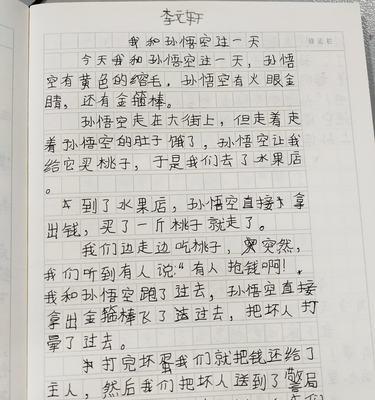 李文轩
我和孙悟空过一天
今天我和孙悟空过一天，孙悟
空有黄色的绒毛，孙悟空有火眼金
睛，还有金箍棒。
孙悟空走在大街上，但走着走
着孙悟空的肚子饿了，孙悟空让我
给它买桃子，于是我们去了水果店
。
到了水果店，孙悟空直接拿
出钱，买了一斤桃子就走了。
我们边走边吃桃子，突然，
我们听到有人说：“有人抢钱啊！
我和孙悟空跑了过去，孙悟空直接
拿出金箍棒飞了过去，把坏人打
晕了过去。
打完坏蛋我们就把钱还给了
主人，然后我们把坏人送到了警局